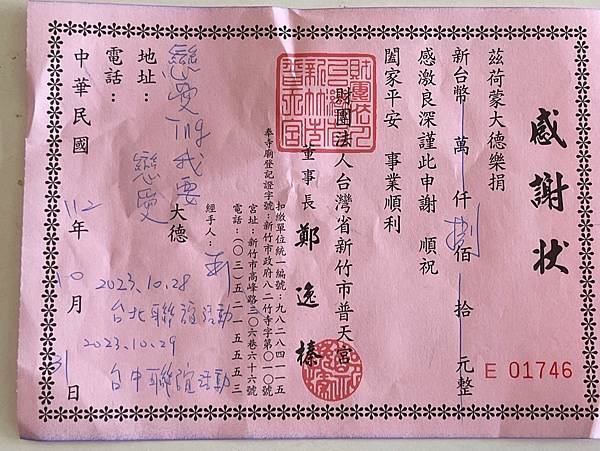 感謝狀
茲荷蒙大德樂捐
新台幣 萬 仟 捌 佰 拾 元整
E 01746
感激良深謹此申謝 順祝
闔家平安 事業順利
財團法人台灣省新竹市普天宮
董事長 鄭逸榛
扣繳單位統一編號:九八二八四一一五
奉寺廟登記證字號:新竹市政府八二竹寺字第〇一〇號
宮址:新竹市高峰路三〇六巷六十六號
電話:(〇三)五二一五五五三
經手人:
戀愛ing我要戀愛 大德
地址:
電話:
2023.10.28
台北聯誼活動
2023.10.29
台中聯誼活動
中華民國 112 年 10 月 31 日